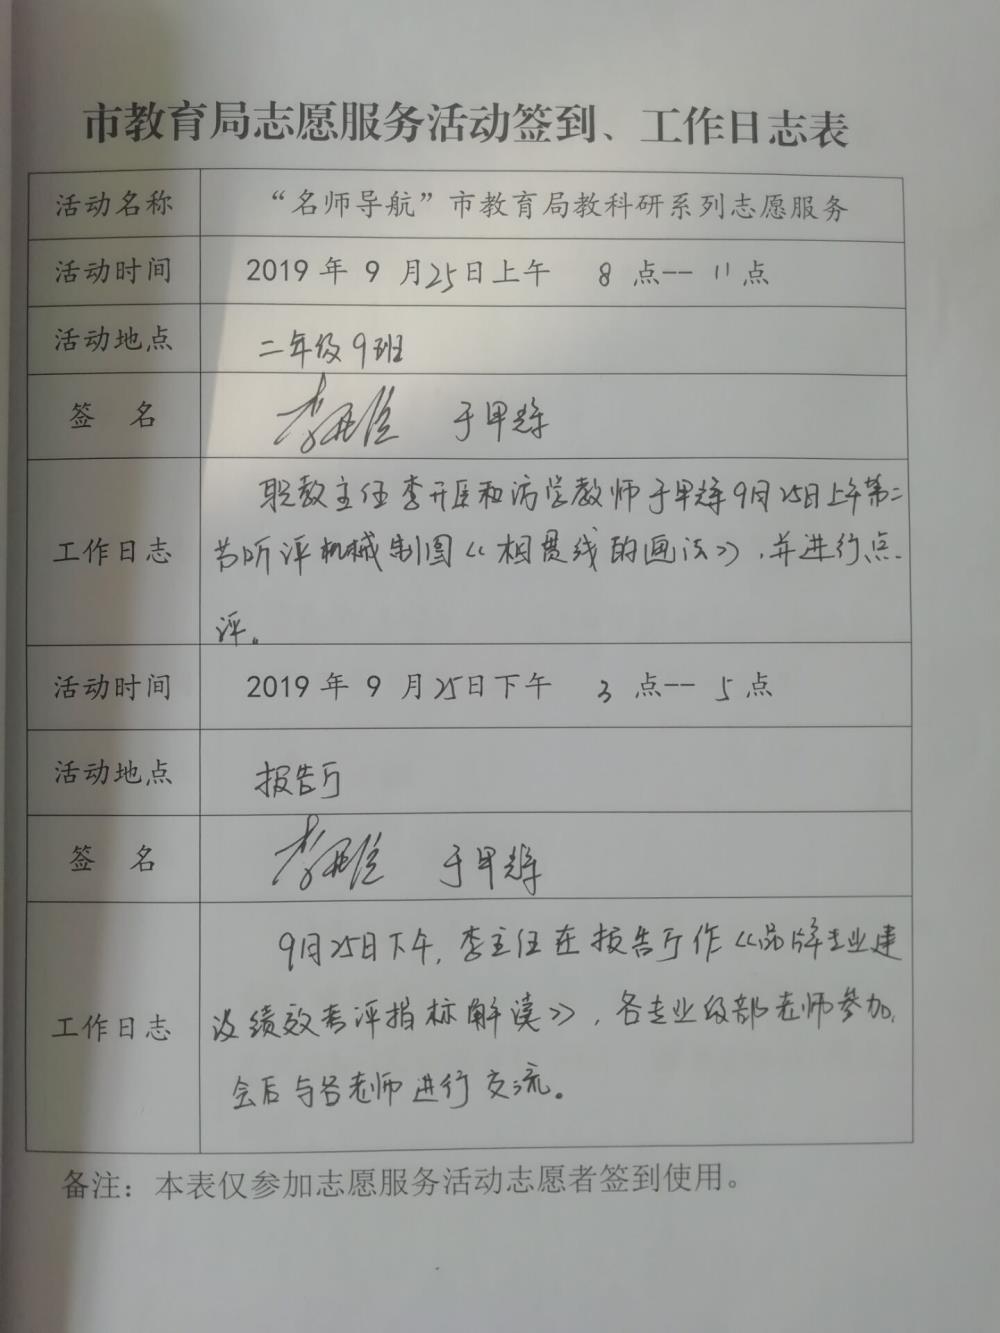 市教育局志愿服务活动签到、工作日志表
活动名称 “名师导航”市教育局教科研系列志愿服务
活动时间 2019 年 9 月25日上午 8 点-- 11 点
活动地点 二年级9班
签 名 于甲辉
职教主任李开臣和访学教师于甲辉9月25日上午第二
工作日志 节听评机械制图《相贯线的画法》,并进行点
评。
活动时间 2019 年 9 月25日下午 3 点-- 5 点
活动地点 报告厅
签 名 于甲辉
9月25日下午,李主任在报告厅作《品牌专业建
工作日志 设绩效考评指标解读》,各专业级部老师参加,
会后与各老师进行交流。
备注:本表仅参加志愿服务活动志愿者签到使用。